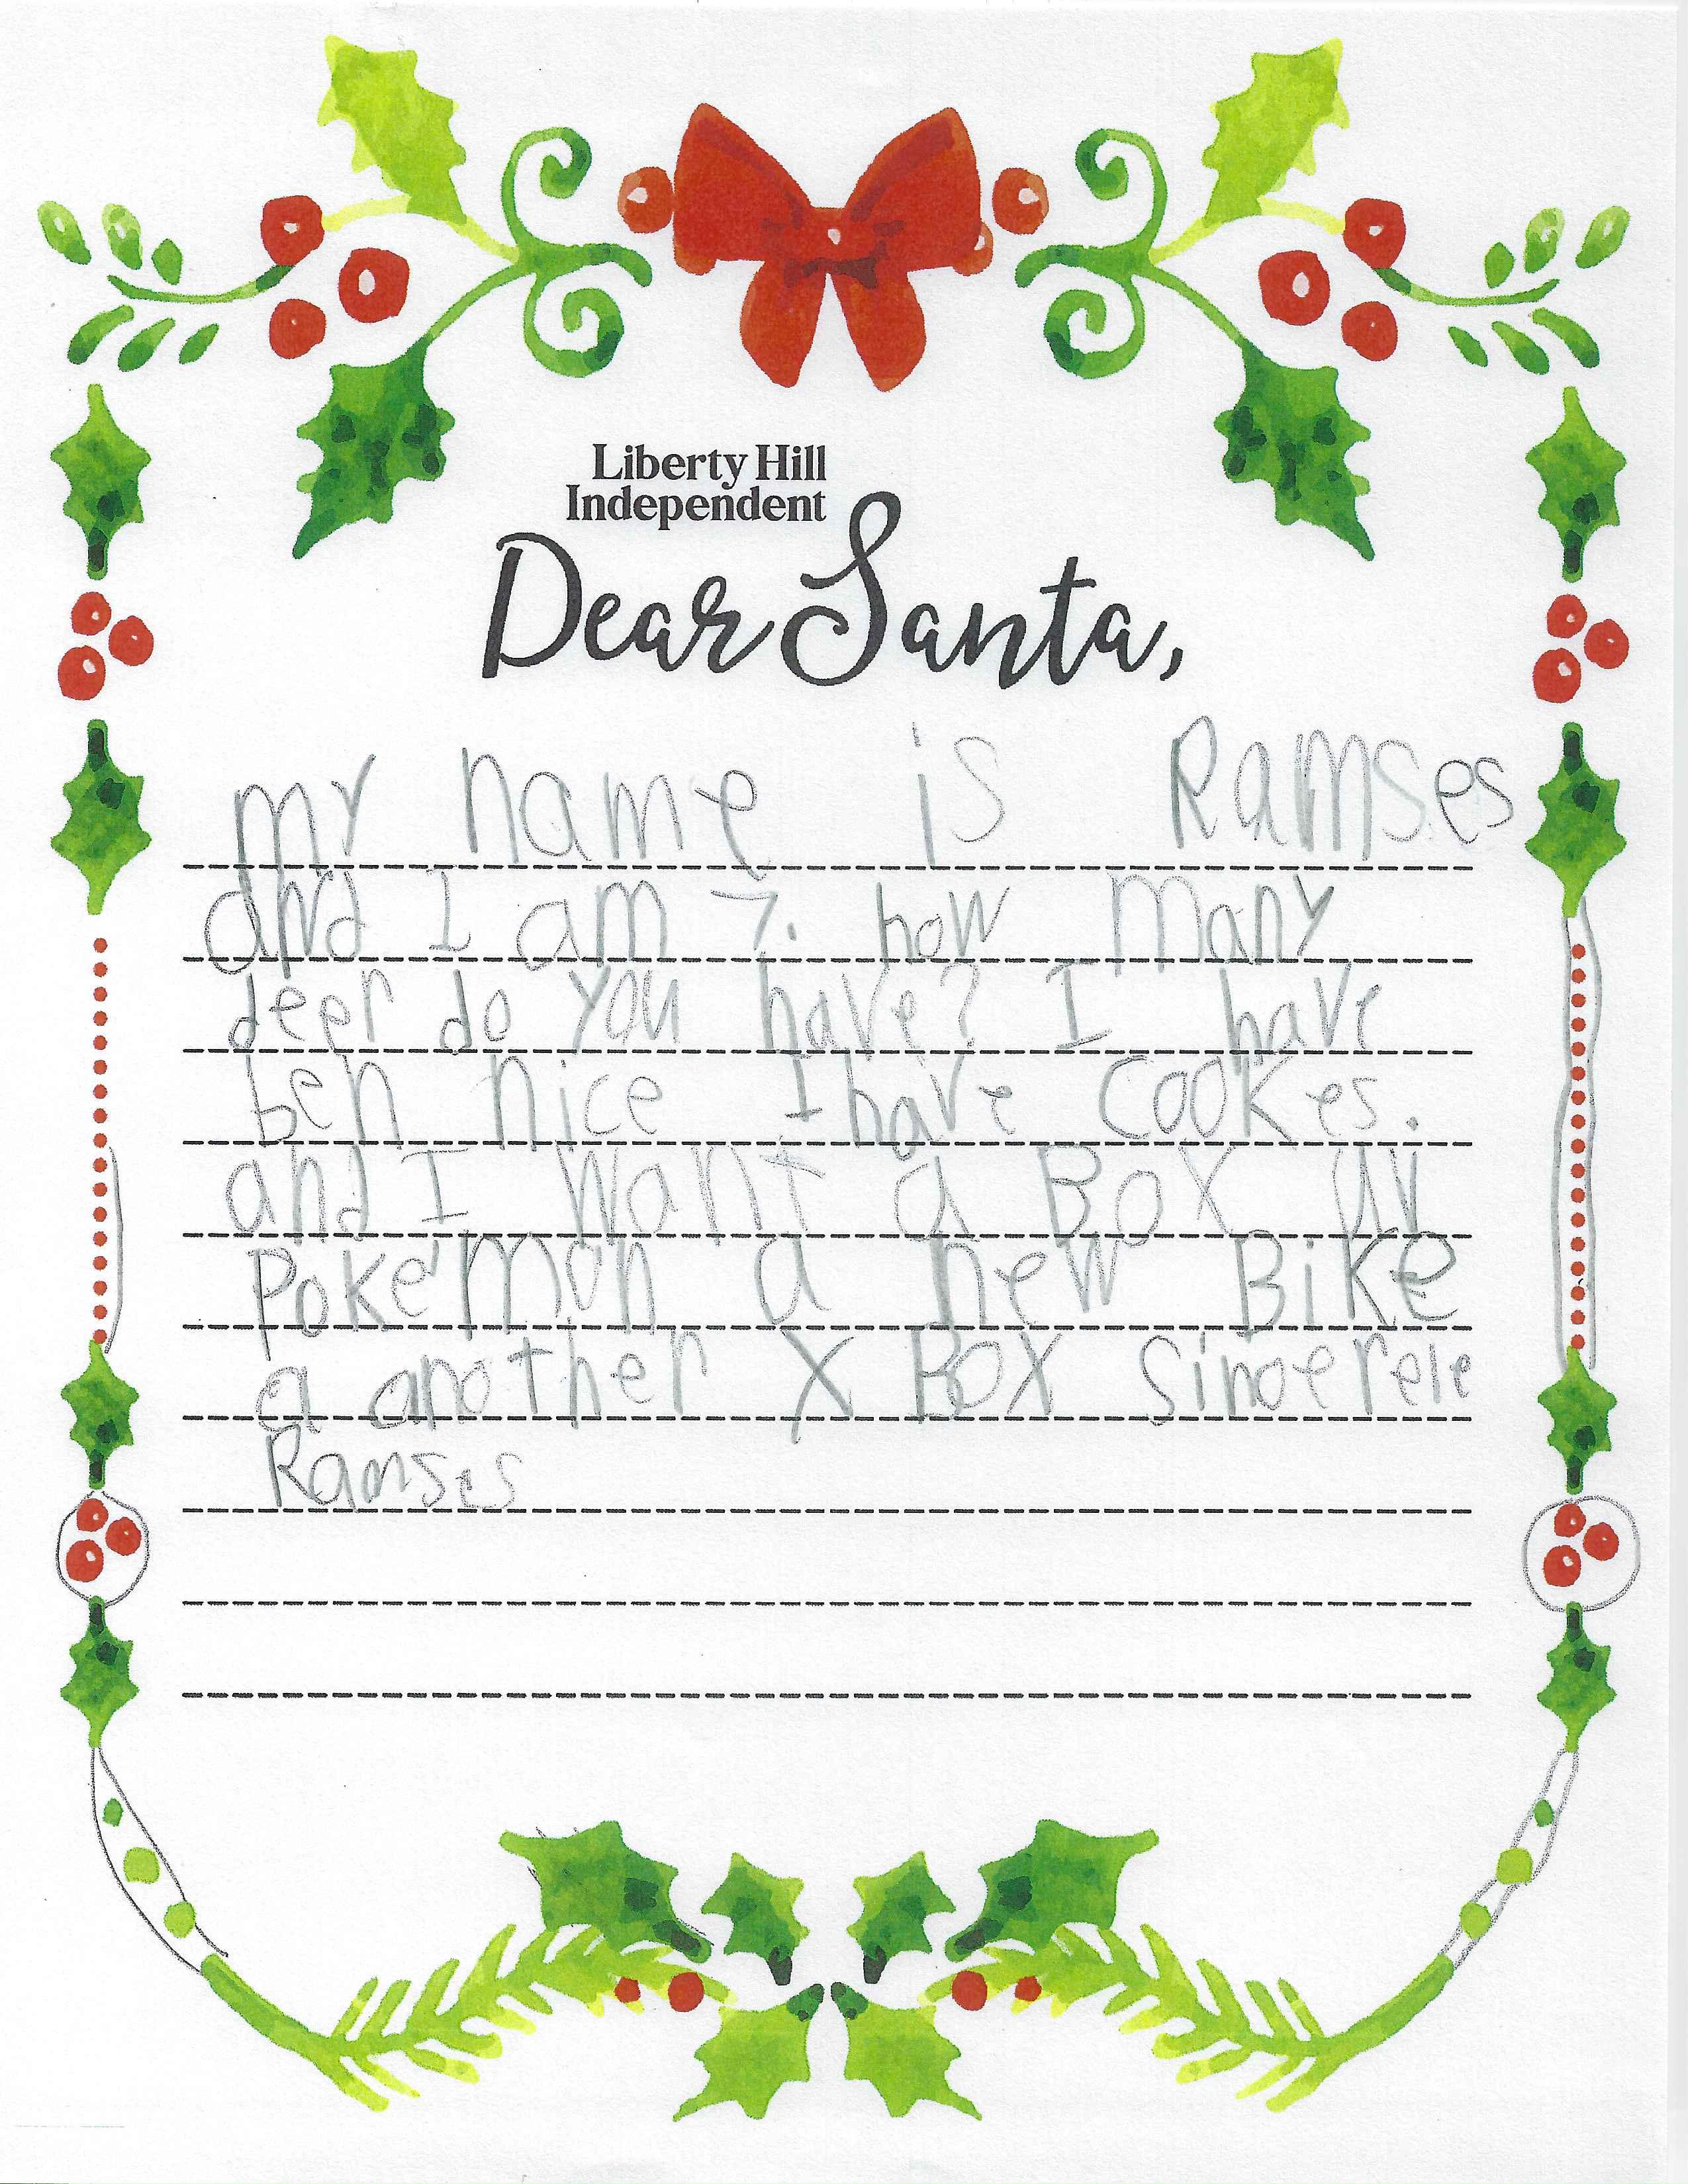 Liberty Hill
Independent
Dear Santa,
my name is Ramses
and I am 7. how many
deer do you have? I have
ben nice I have cookes.
and I want a Box uv
Poke'mon a new Bike
a another X Box Sincerele
Ramses